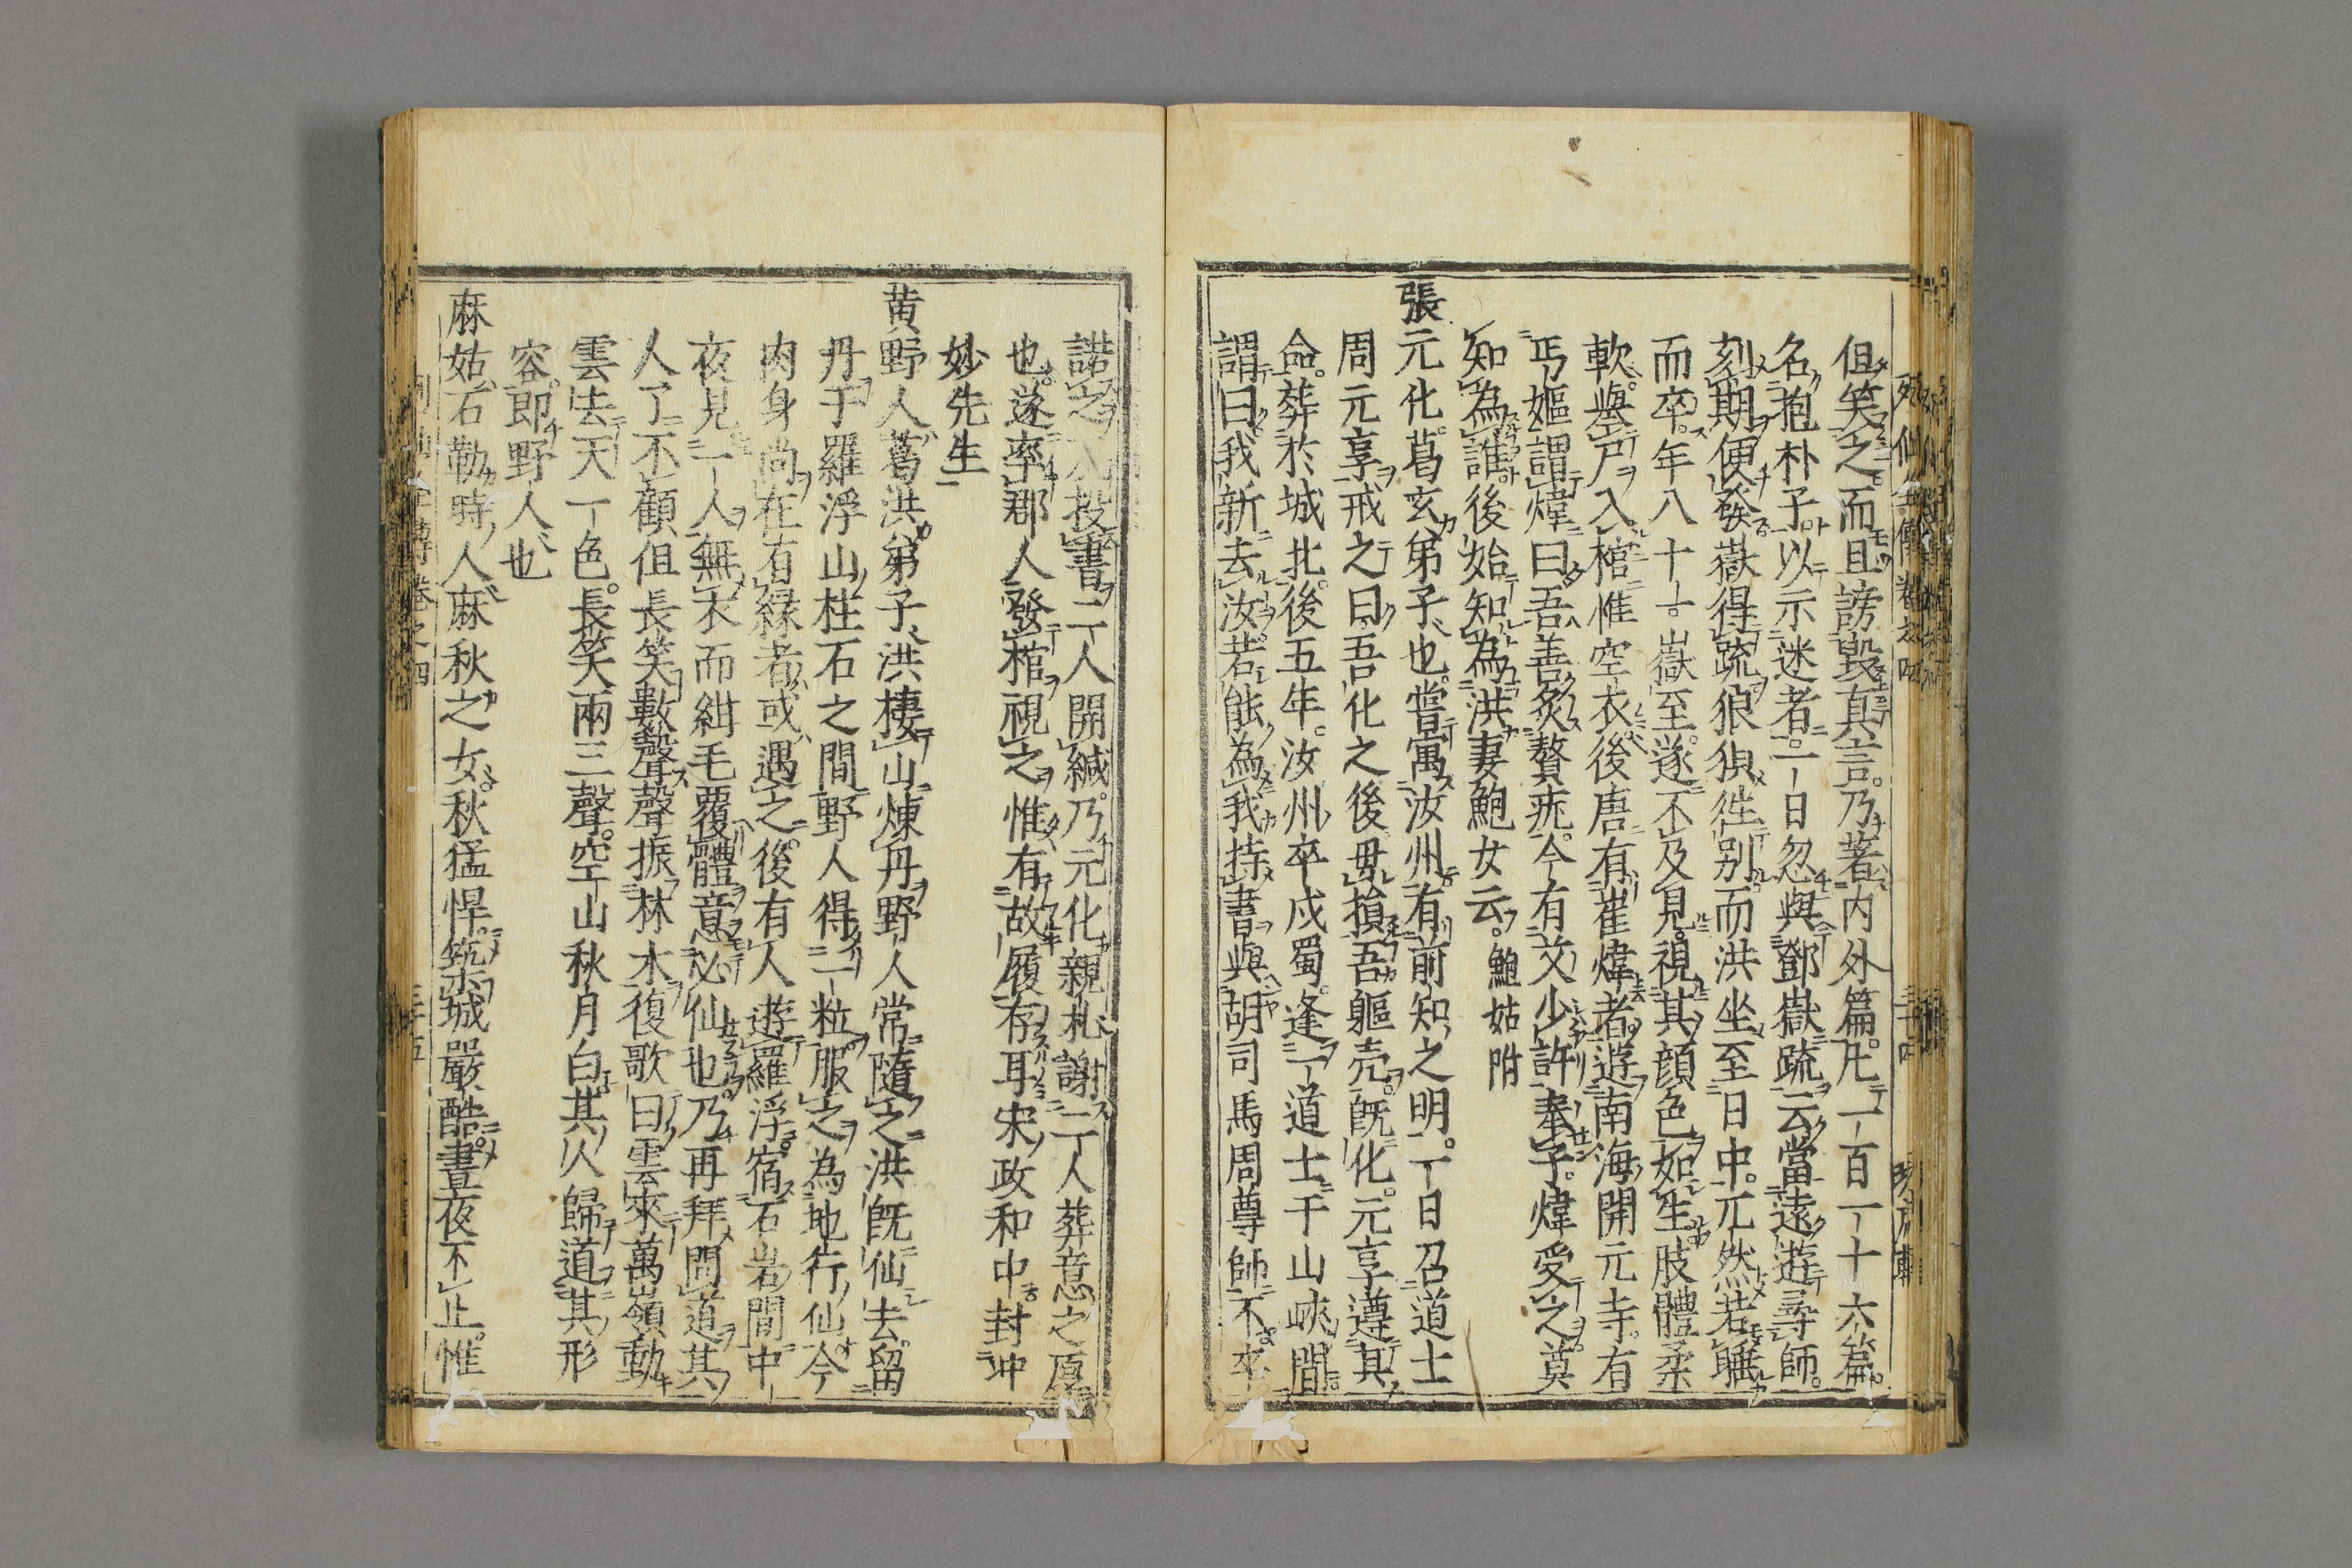 但笑之而且謗毀真言。乃著内外篇。凡一百一十六篇。
名抱朴子。以示迷者。一日忽與鄧嶽疏云當遠遊尋師。
刻期便發嶽得疏狼狽徃別。而洪坐至日中。兀然若睡
而卒。年八十一。嶽至。遂不及見。視其顔色如生肢體柔
軟。擧尸入棺惟空衣。後唐有崔煒者遊南海開元寺。有
丐嫗謂煒曰吾善炙贅疣。今有艾少許奉子。煒受之。莫
知為誰。後始知為洪妻鮑女云。鮑姑附
張元化。葛玄弟子也。嘗寓汝州有前知之明。一日召道士
周元享戒之曰吾化之後毋損吾軀壳。既化。元享遵其
命。葬於城北。後五年。汝州卒戍蜀。逢一道士于山峽間。
謂曰。我新去汝。若能為我持書與胡司馬周尊師。不。卒
諾之投書二人開緘。乃元化親札謝二人葬意之厚
也。遂率郡人發棺視之惟有故履存耳宋政和中封冲
妙先生
黄野人葛洪弟子、洪棲山煉丹野人常隨之洪既仙去。留
丹于羅浮山柱石之間野人得一粒服之為地行仙今
肉身尚在有縁者或遇之。後有人遊羅浮。宿石岩間中
夜見一人無衣而紺毛覆體意必仙也。乃再拜問道其
人了不顧但長笑數聲聲振林木復歌曰雲來萬嶺動
雲去天一色。長笑兩三聲。空山秋月白其火歸道其形
容。即野人也
麻姑石勒時人麻秋之女。秋猛悍。筑城嚴酷。晝夜不止。惟